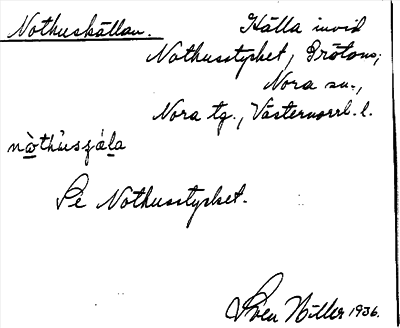 Nothuskällan. Källa invid
Nothusstycket, Grötom,
Nora sn.,
Nora tg., Västernorrl. l.
nòthu̇sʒäla
Se Nothusstycket.
Sven Höller 1936.